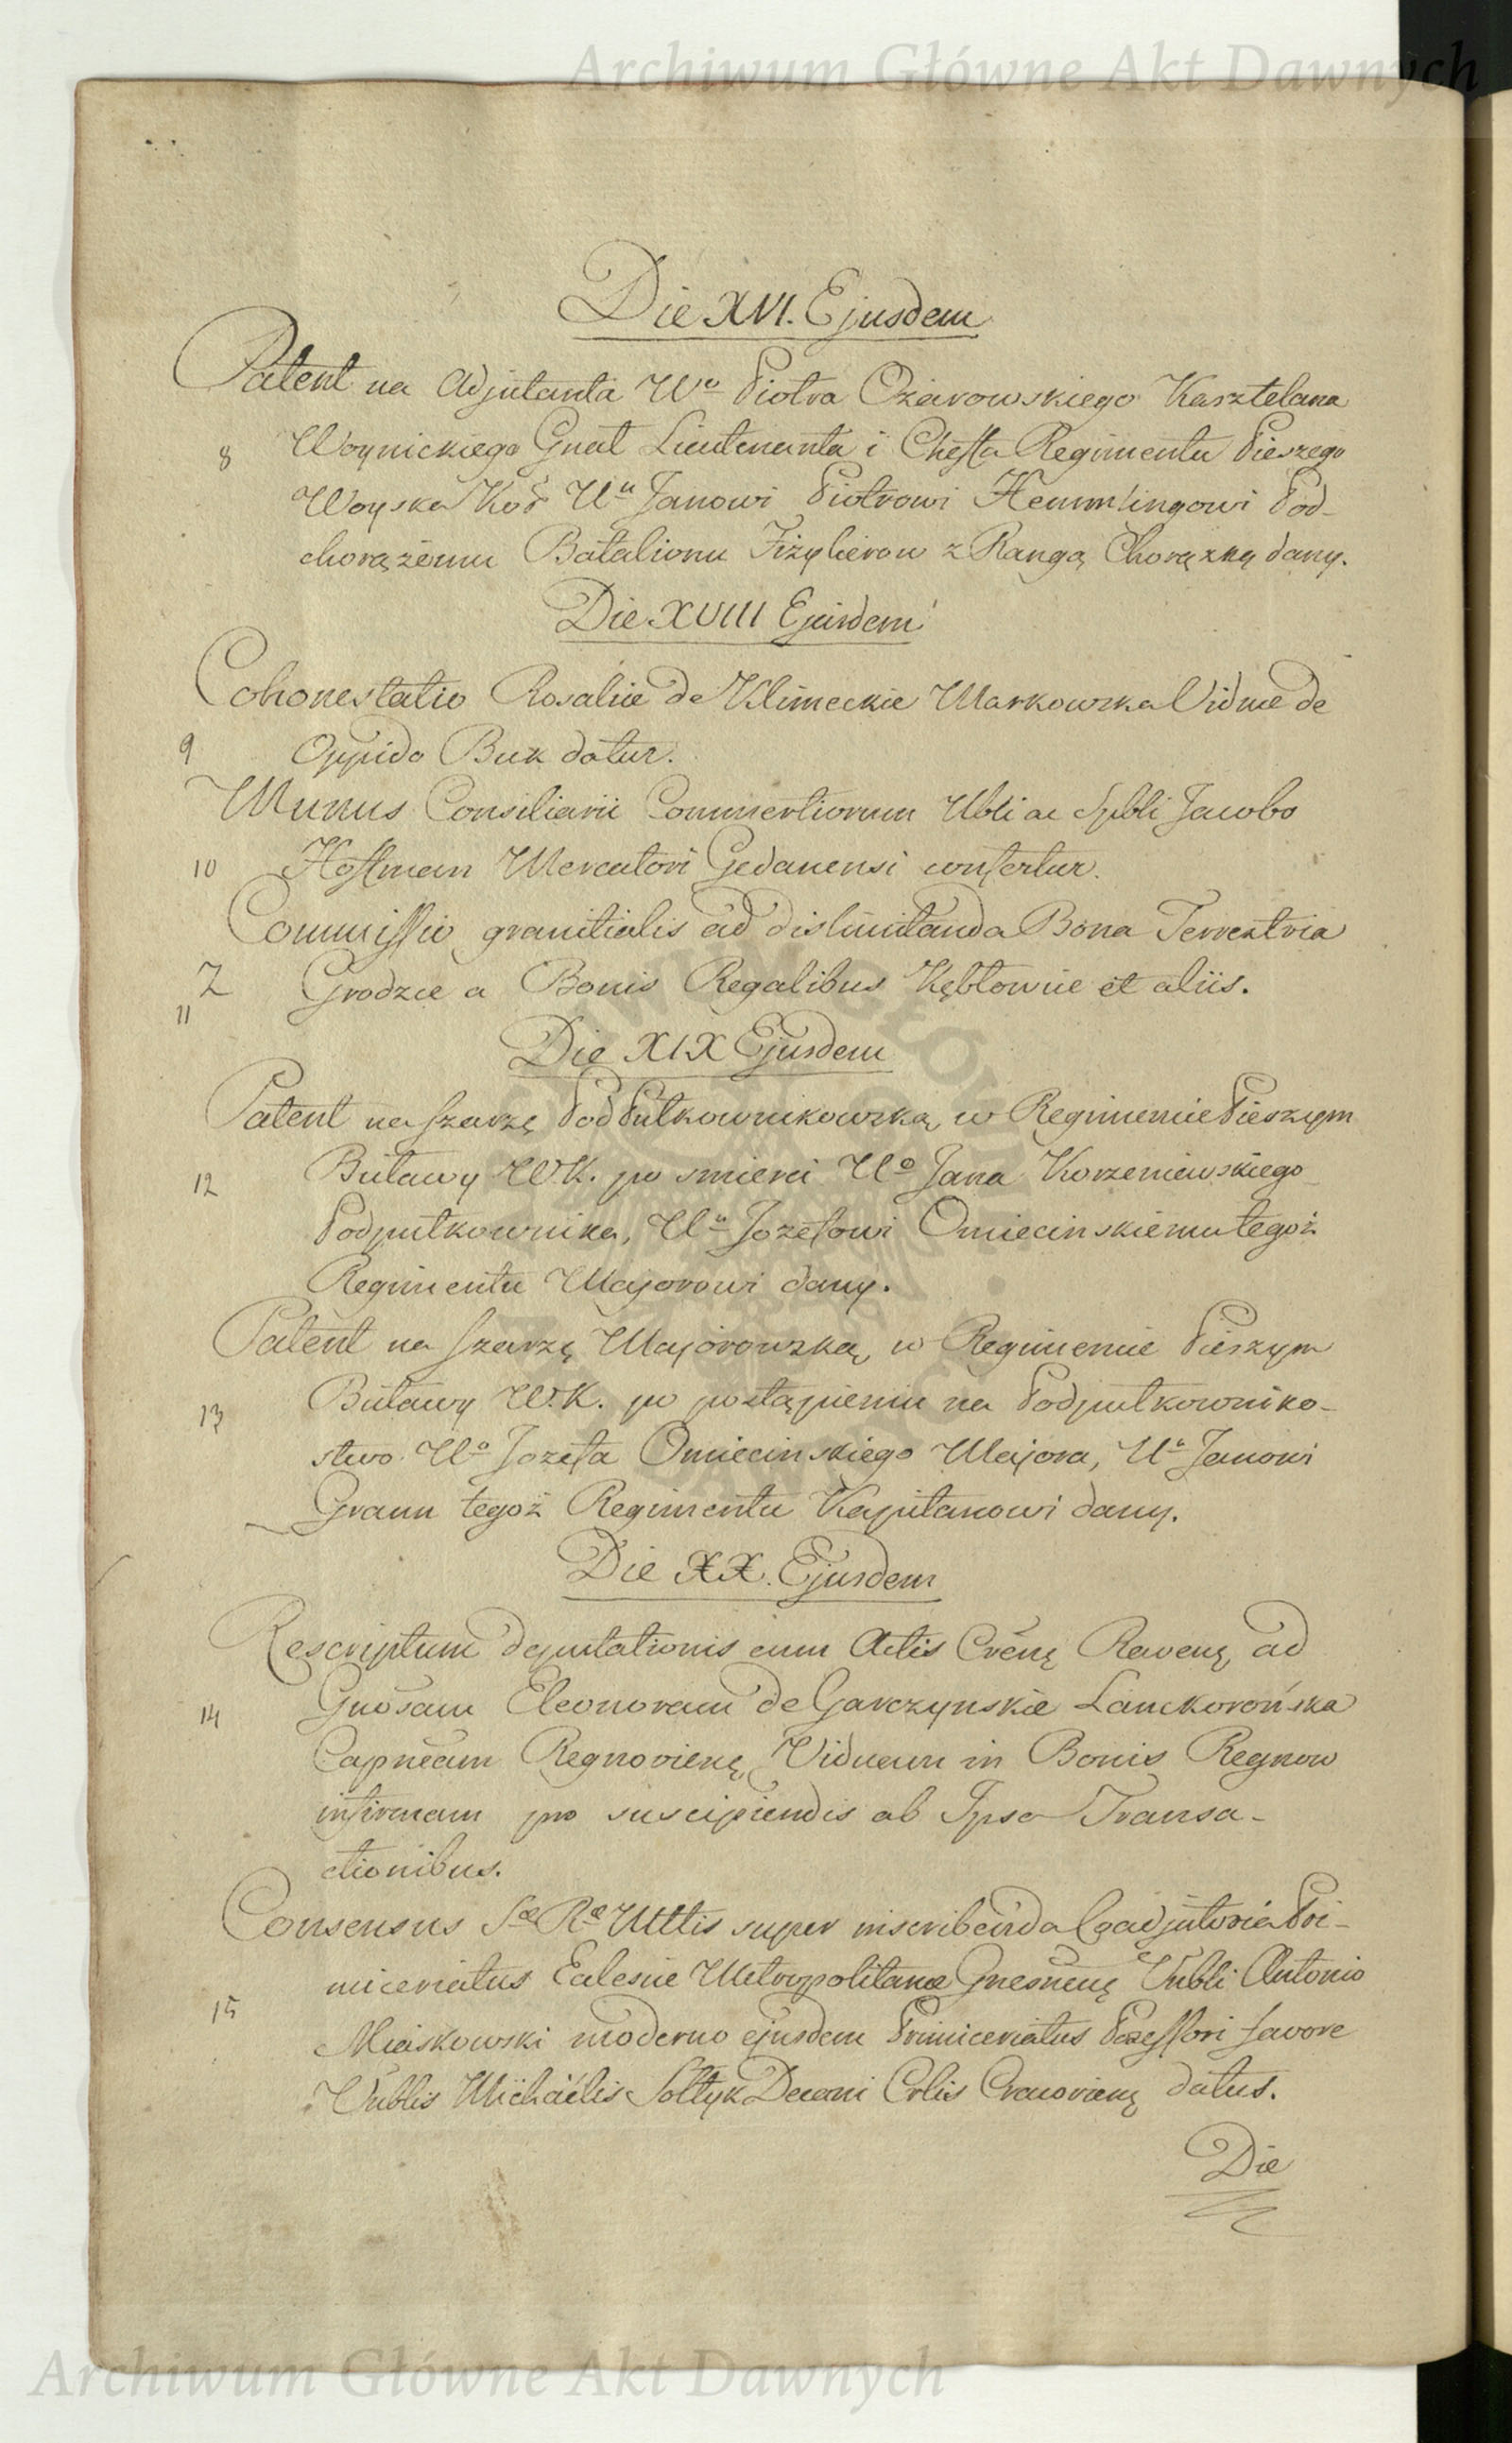 Archiwum Główne Akt Dawnych
Die XVI. Ejusdem
Patent na Adjutanta Wo Piotra Ożarowskiego Kasztelana
8 Woynickiego Gnał Lieutenanta i Cheffa Regimentu Pieszego
Woyska Kor Uu Janowi Piotrowi Hemmlingowi Pod-
chorążemu Batalionu Fizylierow z Rangą Chorązką dany.
Die XVIII Ejusdem
Cohonestatio Rosaliæ de Klimeckie Markowska Viduæ de
9 Oppido Buk datur.
Munus Consiliarii Commertiorum Nbli ac Spbli Jacobo
10 Hoffman Mercatori Gedanensi confertur.
Commissio granitialis ad dislimitanda Bona Terrestria
Z Grodzie a Bonis Regalibus Kębłowie et aliis.
11
Die XIX Ejusdem
Patent na szarzę PodPułkownikowską w Regimencie Pieszym
12 Buławy W.K. po smierci Uo Jana Korzeniewskiego
Podpułkownika, Uu Jozefowi Omiecinskiemu tegoż
Regimentu Majorowi dany.
Patent na szarzę Majorowską w Regimencie Pieszym
13 Buławy W.K. po postąpieniu na Podpułkowniko-
stwo Uo Jozefa Omiecinskiego Majora, Uu Janowi
Graun tegoż Regimentu Kapitanowi dany.
Die XX. Ejusdem
Rescriptum deputationis cum Actis Crenę Ravenę ad
14 Gnosam Eleonoram de Garczynskie Lanckorońska
Capneam Regnovienę Viduam in Bonis Regnow
infirmam pro suscipiendis ab Ipsa Transa-
ctionibus.
Consensus Sæ Ræ Mttis super inscribenda Coadjutoria Pri-
miceriatus Eclesiæ Metropolitanæ Gnesnenę Vnbli Antonio
15 Miaskowski moderno ejusdem Primiceriatus Possessori favore
Vnblis Michaëlis Sołtyk Decani Crlis Cracovienę datus.
Die
Archiwum Główne Akt Dawnych